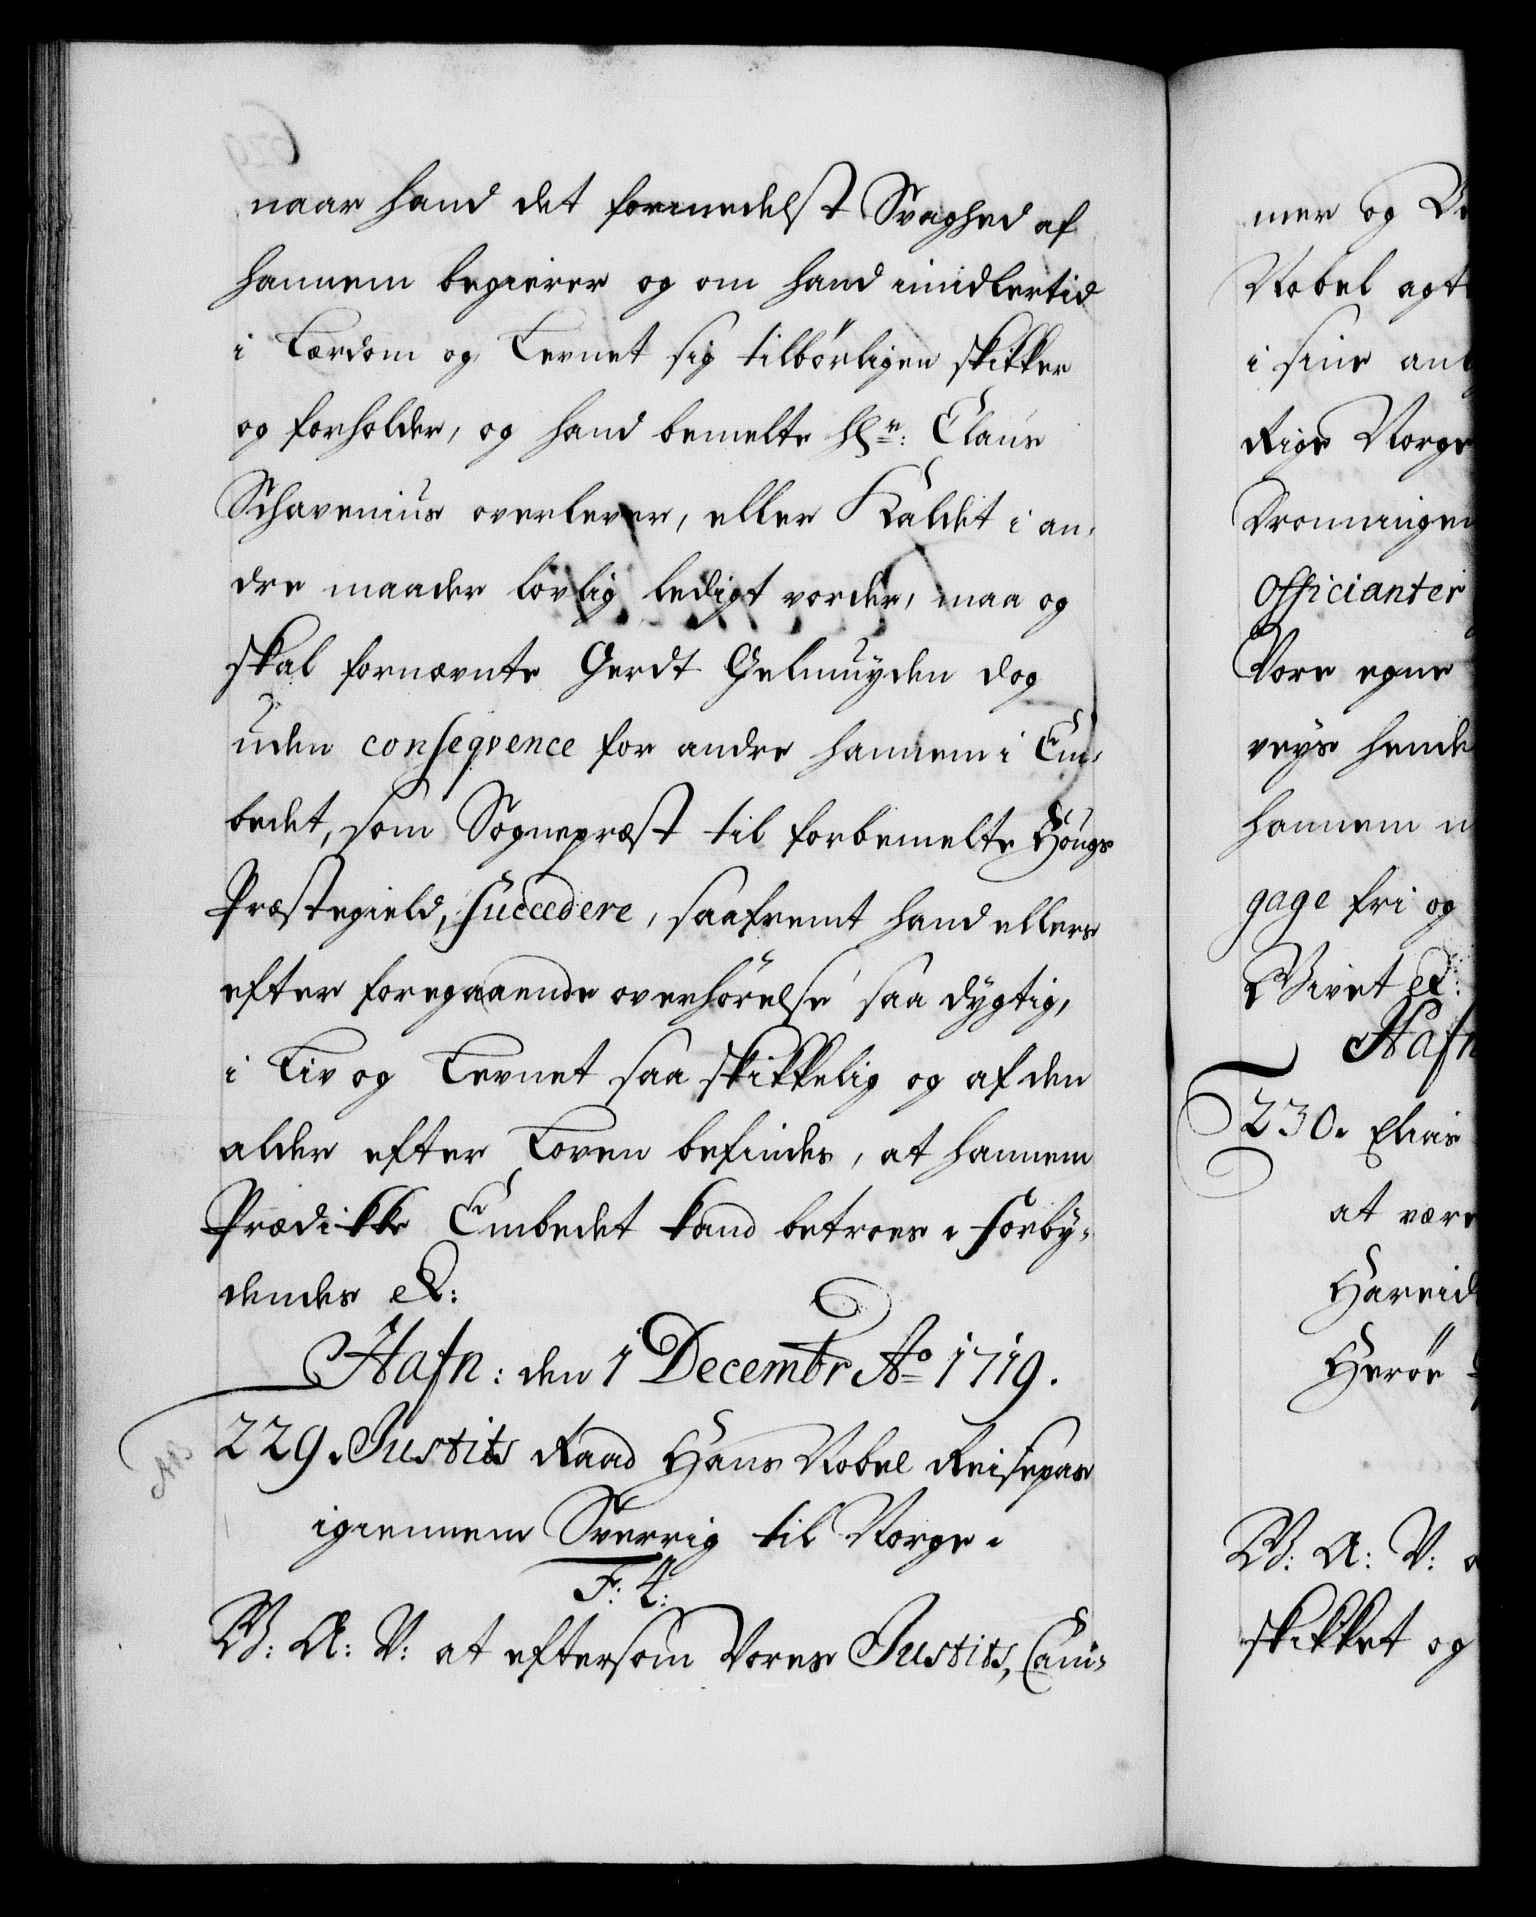 naar hand det formedelst Svaghed af
hannem begierer og om hand imidlertid
i Lærdom og Levnet sig tilbørligen skikker
og forholder, og hand bemelte Hr: Claus
Schavenius overlever, eller Kaldet i an-
dre maader lovlig ledigt vorder, maa og
skal fornævnte Gerdt Gelmuyden dog
uden conseqvence for andre hannem i Em-
bedet, som Sognepræst til forbemelte Hougs
Præstegield, succedere, saafremt hand ellers
efter foregaaende overhørelse saa dygtig,
i Liv og Levnet saa skikkelig og af den
alder efter Loven befindes, at hannem
Prædikke Embedet kand betroes. Forby-
dendes &:
Hafn: den 1 Decembr Ao 1719.
229. Justits Raad Hans Nobel Reisepas
igiennem Sverrig til Norge.
F: 4:
W: A: V: at eftersom Vores Justits, Cam-
mer og
Nobel agt
i sine an
Rige Norge
Dronningen
Officianter
Vore egne
veys hende
hannem
gage fri og
Givet &:
Hafn
230. Elias
at være
Hareid
Herøe
W: A: V:
skikket og